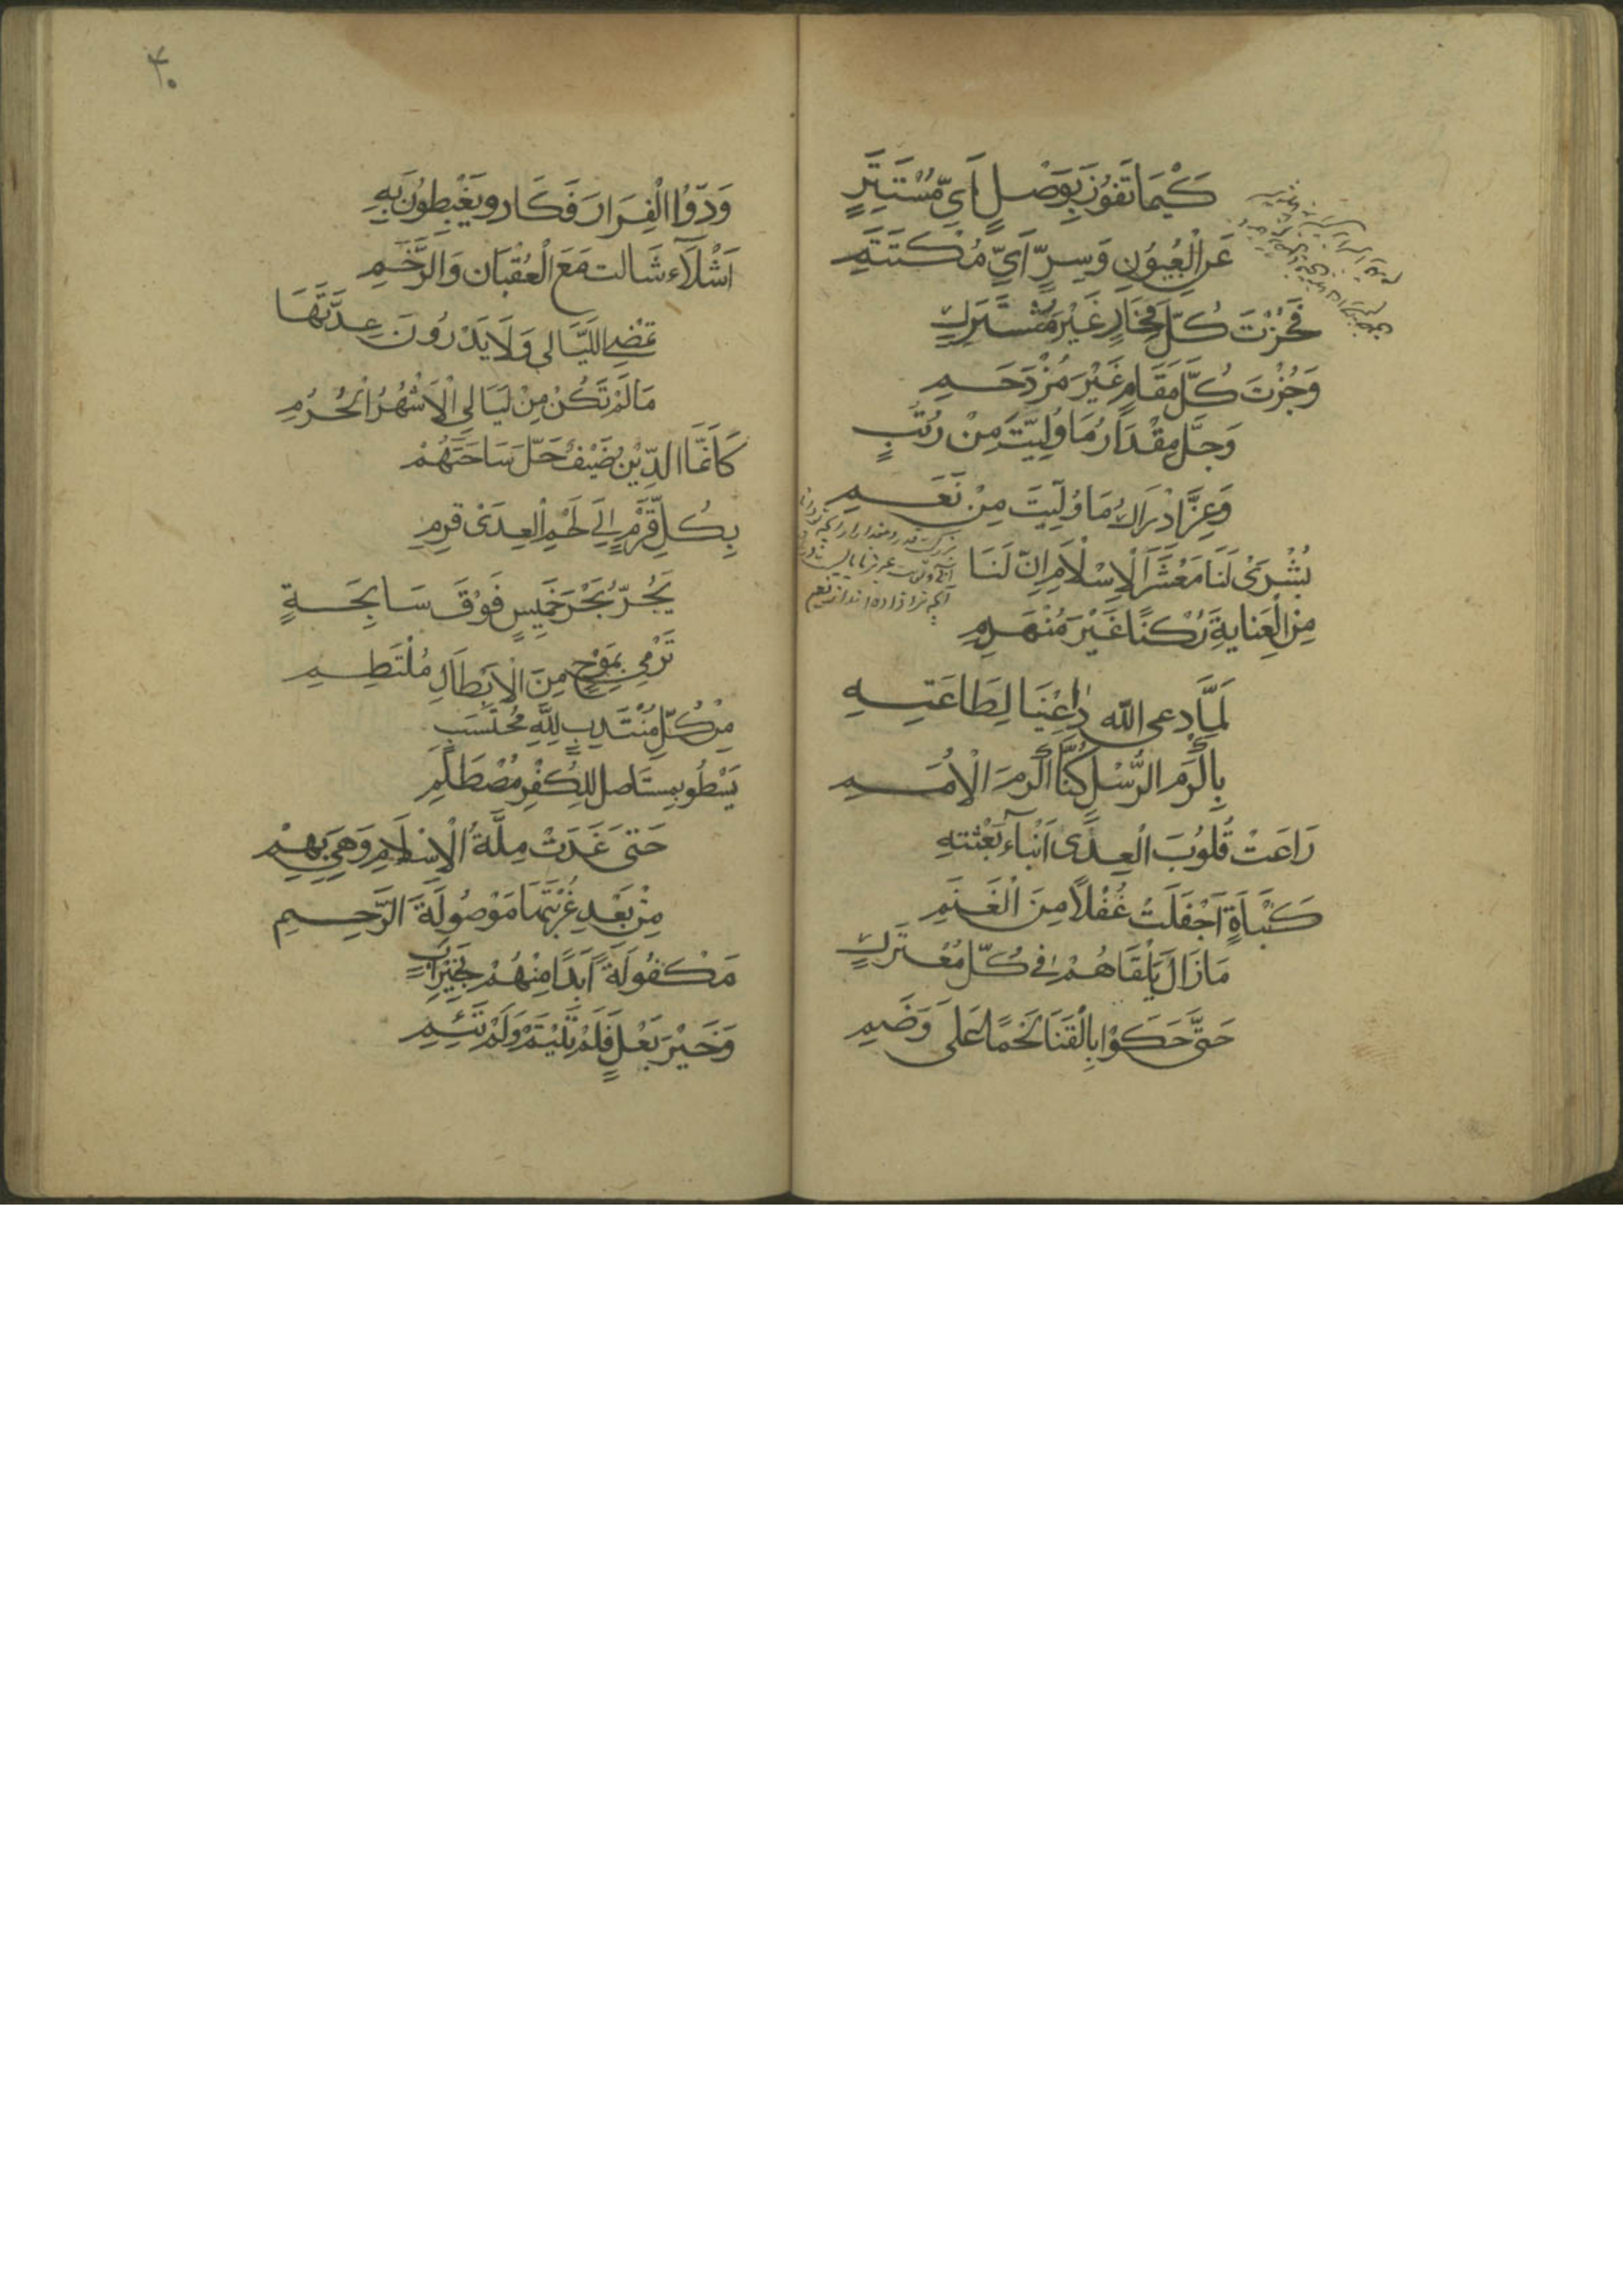 كَيْمَا تَفُوزَ بِوَصْلٍ اَيِّ مُسْتَتِرٍ
عَنِ الْعُيُوْنِ وَسِرٍّ اَيِّ مُكْتَتَمِ
فَحُزْتَ كُلَّ فَخَارٍ غَيْرَ مُشْتَرَكٍ
وَجُزْتَ كُلَّ مَقَامٍ غَيْرَ مُزْدَحَمِ
وَجَلَّ مِقْدَارُ مَا وُلِّيْتَ مِنْ رُتَبٍ
وَعِزَّ اِدْرَاكُ مَا وُلِّيْتَ مِنْ نَعَمِ
بُشْرَىْ لَنَا مَعْشَرَ الْاِسْلَامِ اِنَّ لَنَا
مِنَ الْعِنَايَةِ رُكْنًا غَيْرَ مُنْهَدِمِ
لَمَّا دعى الله دَاعِيْنَا لِطَاعَتِهِ
بِاَكْرَمِ الرُّسْلِ كُنَّا اَكْرَمَ الْاُمَمِ
رَاعَتْ قُلُوْبَ الْعِدَى اَنْبَآءُ بِعْثَتِهِ
كَنَبْأَةٍ اَجْفَلَتْ غُفْلاً مِنَ الْغَنَمِ
مَا زَالَ يَلْقَاهُمْ فِى كُلِّ مُعْتَرَكٍ
حَتَّى حَكَوْا بِالْقَنَا لَحْمًا عَلَى وَضَمِ
۴۰
وَدُّوْا الْفِرَارَ فَكَادو يَغْبِطُونَ بِهِ
اَشْلَآءَ شَالت مَعَ الْعُقْبَانِ وَالرَّخَمِ
تَمْضِى اللَّيَالى وَلَا يَدْرُونَ عِدَّتَهَا
مَا لَمْ تَكُنْ مِنْ لَيَالِى الْاَشْهُرِ الْحُرُمِ
كَاَنَّمَا الدِّيْنُ ضَيْفٌ حَلَّ سَاحَتَهُمْ
بِكُلِّ قَرْمٍ اِلَى لَحْمِ الْعِدَىْ قَرِمِ
يَجُرُّ بَحْرَ خَمِيسٍ فَوْقَ سَابِحَةٍ
تَرْمِى بِمَوْجٍ مِنَ الْاَبْطَالِ مُلْتَطِمِ
مِنْ كُلِّ مُنْتَدِبٍ لِلّٰهِ مُحْتَسِبٍ
يَسْطُو بمستَاصل لِلكُفْرِ مُصْطَلِمِ
حَتى غَدَتْ مِلَّةُ الْاِسْلَامِ وَهْىَ بِهِمْ
مِنْ بَعْدِ غُرْبَتِهَا مَوْصُولَةَ الرَّحِمِ
مَكْفُولَةً اَبَدًا مِنْهُمْ بِخَيْرِ اَبٍ
وَخَيْرِ بَعْلٍ فَلَمْ تَيْتَمْ وَلَمْ تَئِمِ